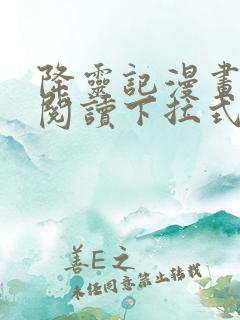 降靈記漫畫
閱讀下拉式
善E之
未任同意禁止轉載